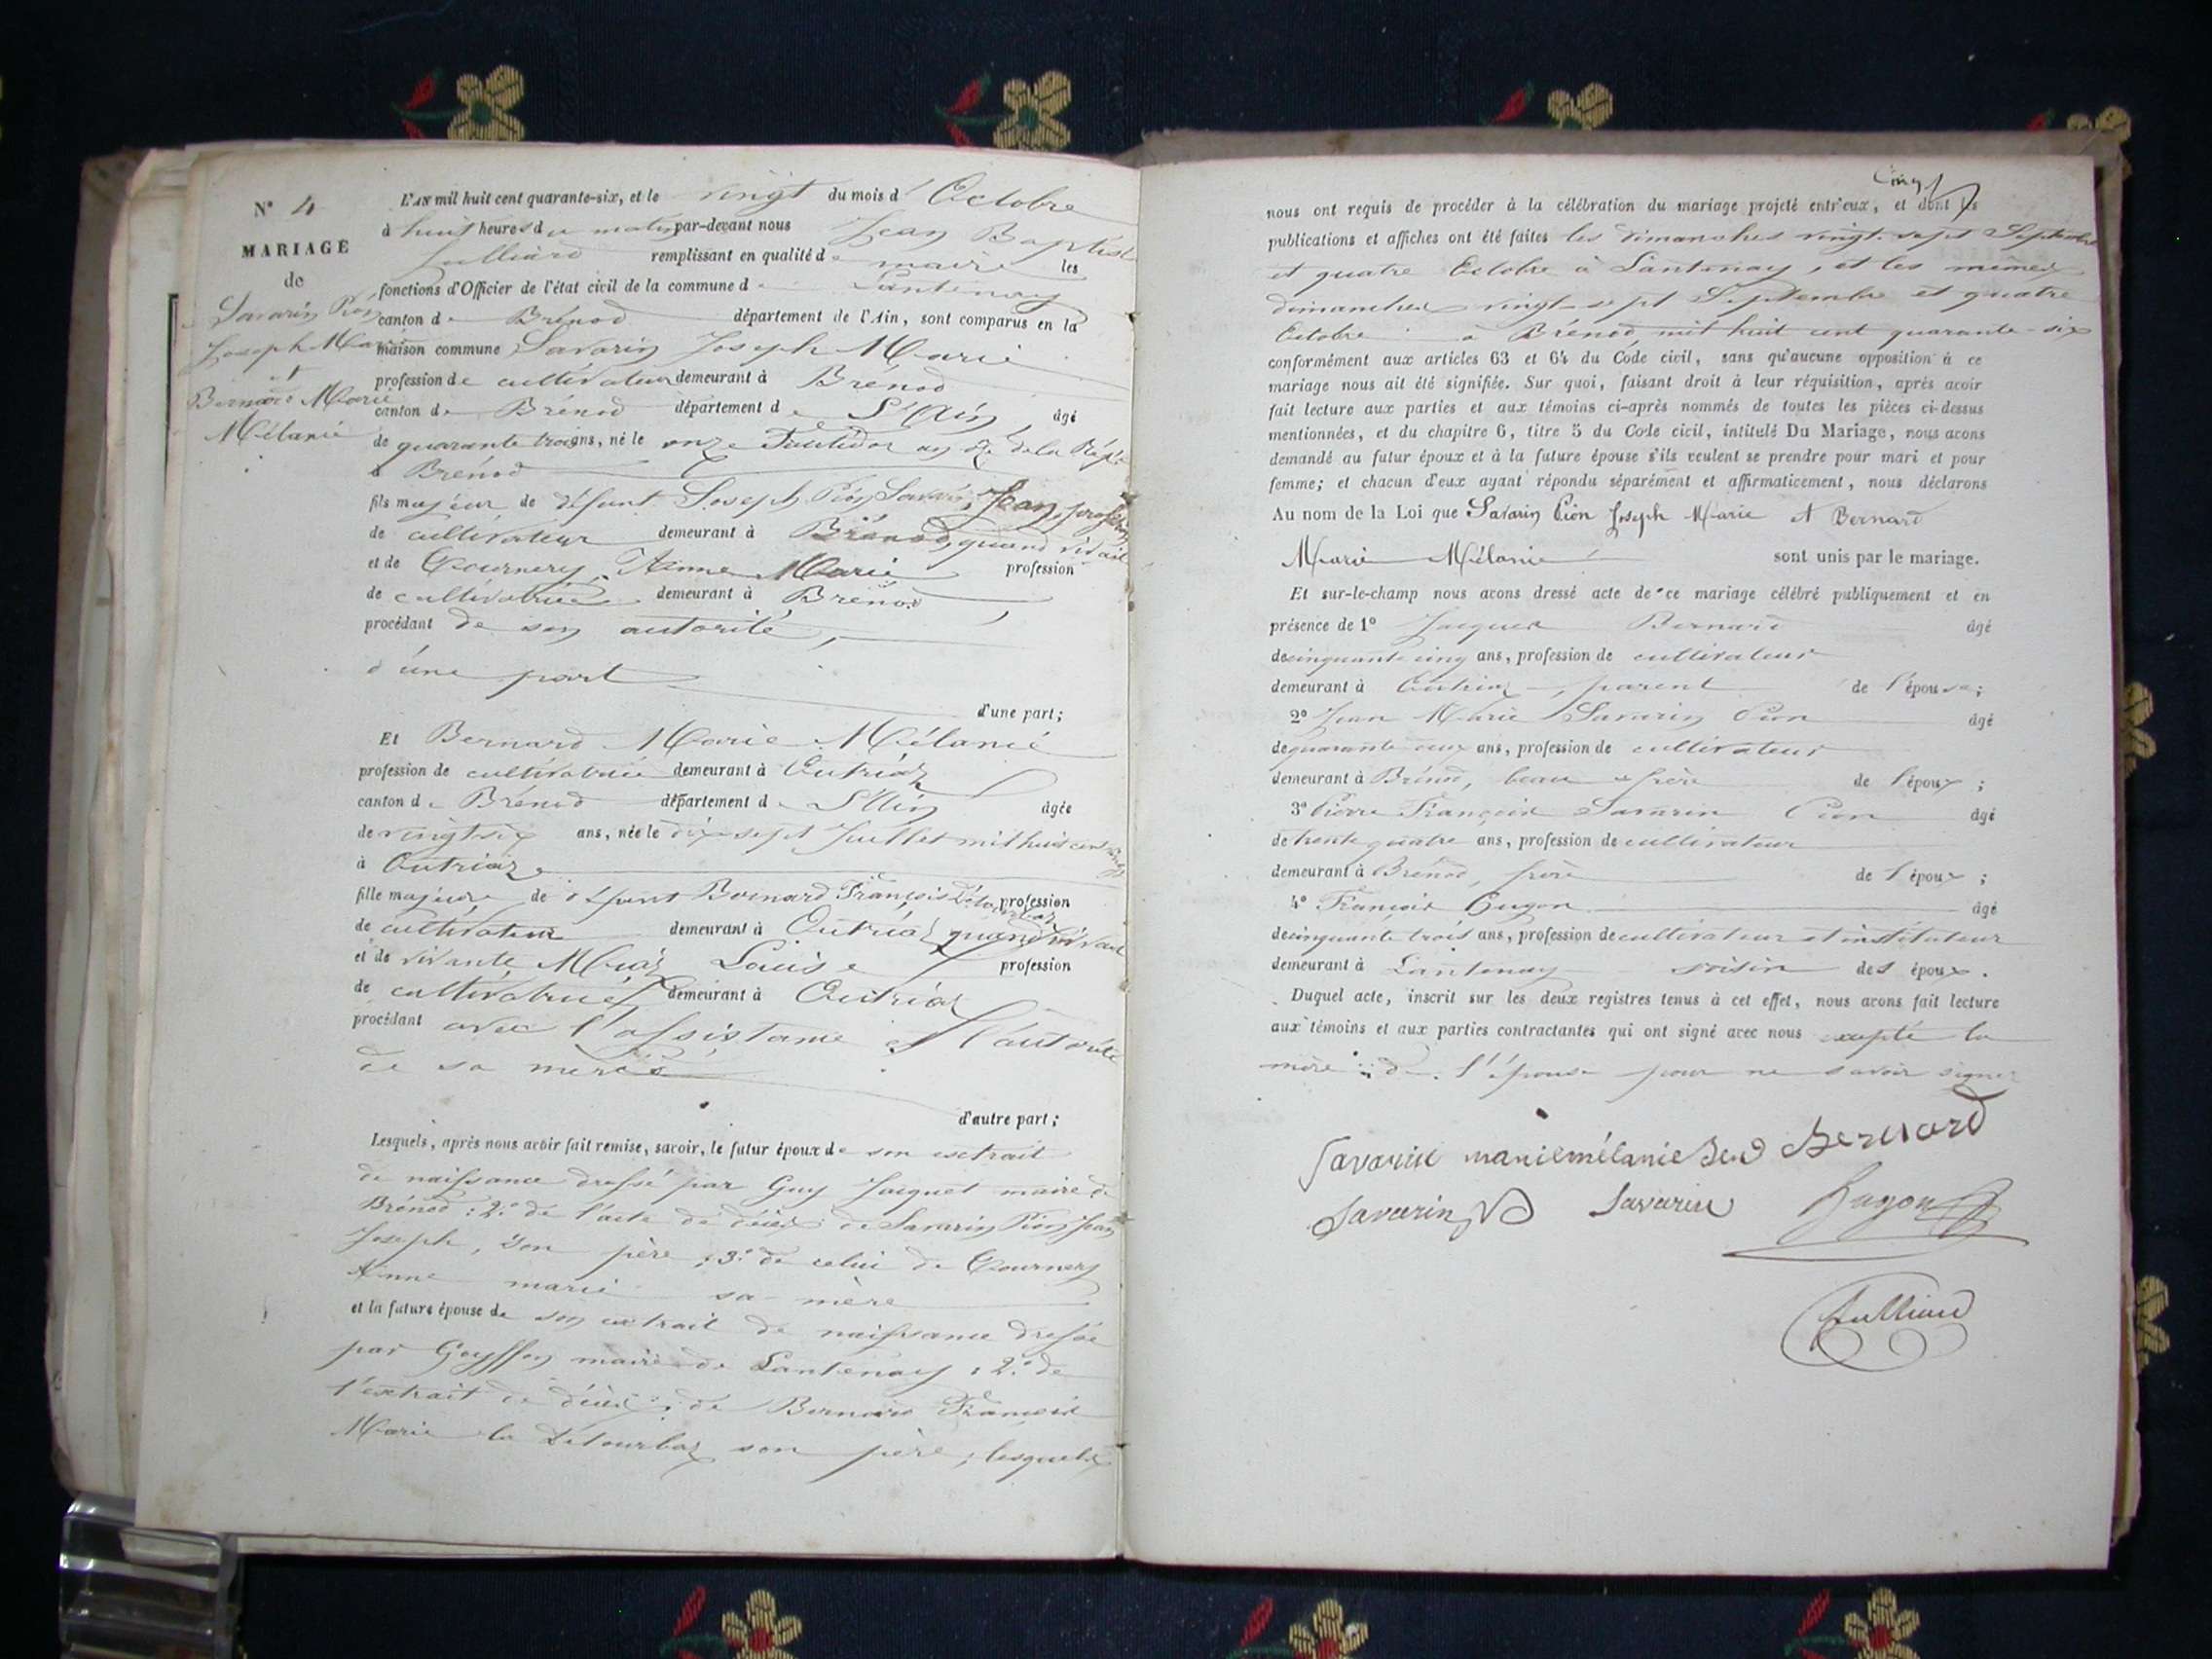 N° 4
MARIAGE
de
Savarin Pion
Joseph Marie
et
Bernard Marie
Mélanie
L'AN mil huit cent quarante-six, et le vingt du mois d'Octobre
à huit heures du matin par-devant nous Jean Baptiste
Julliard remplissant en qualité de maire les
fonctions d'Officier de l'état civil de la commune de Lantenay
canton de Brénod département de l'Ain, sont comparus en la
maison commune Savarin Joseph Marie
profession de cultivateur demeurant à Brénod
canton de Brénod département de L'Ain, âgé
de quarante trois ans, né le onze an de la
à Brénod
fils majeur de défunt Joseph Pion Savarin, Jean, profession
de cultivateur demeurant à Brénod, quand vivait
et de Gournery, Anne Marie profession
de cultivatrice demeurant à Brénod
procédant de son autorité,
d'une part
d'une part;
Et Bernard Marie Mélanie
profession de cultivatrice demeurant à Outriaz
canton de Brénod département de L'Ain âgée
de vingt six ans, née le dix-sept Juillet mil huit cent vingt
à Outriaz
fille majeure de défunt Bernard François Détourbaz profession
de cultivateur demeurant à Outriaz quand vivait
et de vivante Louise profession
de cultivatrice demeurant à Outriaz
procédant avec l'assistance et l'autorité
de sa mère
d'autre part;
Lesquels, après nous avoir fait remise, savoir, le futur époux de son extrait
de naissance dressé par Guy Jacquet maire de
Brénod : 2° de l'acte de décès de Savarin Pion Jean
Joseph, son père ; 3° de celui de Gournery
Anne marie sa mère
et la future épouse de son extrait de naissance dressé
par Goyffon maire de Lantenay : 2° de
l'extrait de décès de Bernard François
Marie la Détourbaz son père ; lesquels
cinq
nous ont requis de procéder à la célébration du mariage projeté entr'eux, et dont les
publications et affiches ont été faites les dimanches vingt-sept Septembre
et quatre Octobre à Lantenay, et les mêmes
dimanches vingt-sept Septembre et quatre
Octobre à Brénod, mil huit cent quarante-six
conformément aux articles 63 et 64 du Code civil, sans qu'aucune opposition à ce
mariage nous ait été signifiée. Sur quoi, faisant droit à leur réquisition, après avoir
fait lecture aux parties et aux témoins ci-après nommés de toutes les pièces ci-dessus
mentionnées, et du chapitre 6, titre 5 du Code civil, intitulé Du Mariage, nous avons
demandé au futur époux et à la future épouse s'ils veulent se prendre pour mari et pour
femme; et chacun d'eux ayant répondu séparément et affirmativement, nous déclarons
Au nom de la Loi que Savarin Pion Joseph Marie et Bernard
Marie Mélanie sont unis par le mariage.
Et sur-le-champ nous avons dressé acte de ce mariage célébré publiquement et en
présence de 1° Jacques Bernard âgé
de cinquante cinq ans, profession de cultivateur
demeurant à Outriaz, parent de l'épouse;
2° Jean Marie Savarin Pion âgé
de quarante deux ans, profession de cultivateur
demeurant à Brénod, beau frère de l'époux;
3° Pierre François Savarin Pion âgé
de trente quatre ans, profession de cultivateur
demeurant à Brénod, frère de l'époux;
4° François Gugon âgé
de cinquante trois ans, profession de cultivateur et instituteur
demeurant à Lantenay voisin des époux.
Duquel acte, inscrit sur les deux registres tenus à cet effet, nous avons fait lecture
aux témoins et aux parties contractantes qui ont signé avec nous excepté la
mère de l'épouse pour ne savoir signer
Savarin mariemélanie Bernard
Savarin Savarin
Julliard